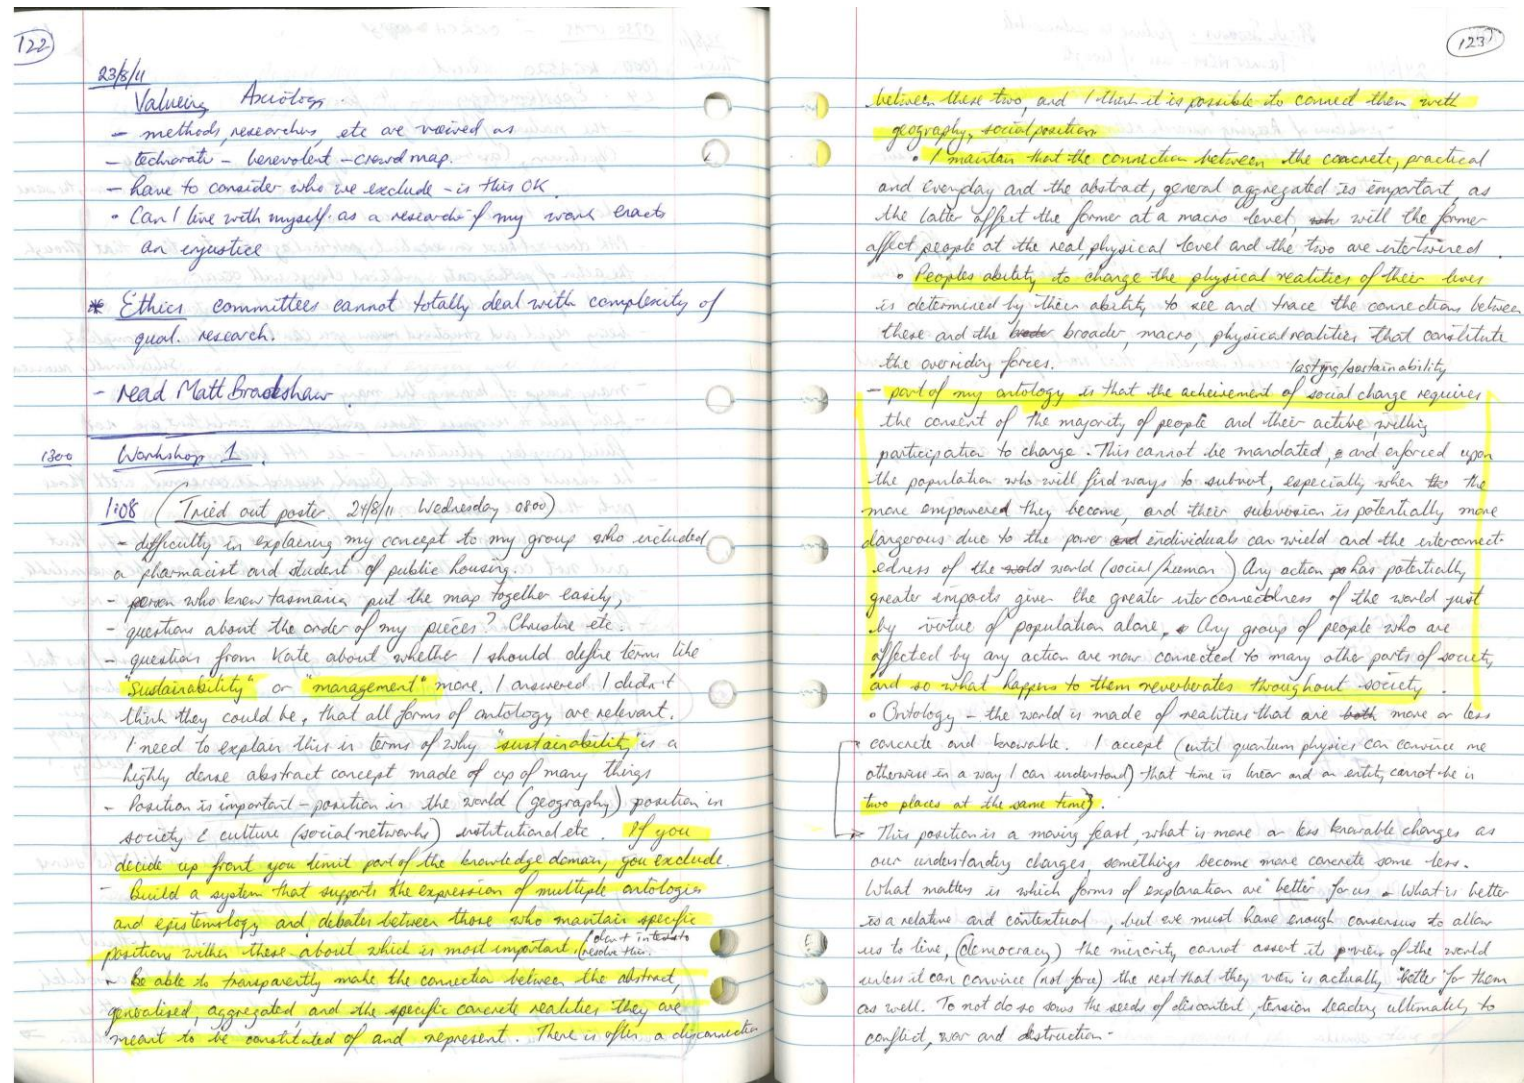 122
23/8/11
Valueing Axiology
- methods, researchers, etc are voiced as
- techorati - benevolent - crowd map.
- have to consider who we exclude - is this OK.
• Can I live with myself as a researcher if my work enacts
an injustice
* Ethics committees cannot totally deal with complexity of
qual. research.
- read Matt Bradshaw.
1300 Workshop 1.
1:08 (Tried out poster. 24/8/11 Wednesday 0800)
- difficulty in explaining my concept to my group who included
a pharmacist and student of public housing.
- person who knew tasmania put the map together easily,
- questions about the order of my pieces? Christine etc.
- question from Kate about whether I should define terms like
"sustainability" or "management" more. I answered I didn't
think they could be, that all forms of ontology are relevant.
I need to explain this in terms of why "sustainability" is a
highly dense abstract concept made of up of many things
- Position is important - position in the world (geography) position in
society & culture (social networks) institutional etc. If you
decide up front you limit part of the knowledge domain, you exclude.
- Build a system that supports the expression of multiple ontologies
and epistemology and debates between those who maintain specific
positions within these about which is most important. (don't intend to
resolve this.
- Be able to transparently make the connection between the abstract,
generalised, aggregated, and the specific concrete realities they are
meant to be constituted of and represent. There is often a disconnection
123
between these two, and I think it is possible to connect them with
geography, social position
• I maintain that the connection between the concrete, practical
and everyday and the abstract, general aggregated is important, as
the latter affect the former at a macro level, will the former
affect people at the real, physical level and the two are intertwined.
• Peoples ability to change the physical realities of their lives
is determined by their ability to see and trace the connections between
these and the broader, macro, physical realities that constitute
the overriding forces.
lasting/sustainability
- part of my ontology is that the acheivement of social change requires
the consent of the majority of people and their active, willing
participation to change. This cannot be mandated, and enforced upon
the population who will find ways to subvert, especially when the
more empowered they become, and their subversion is potentially more
dangerous due to the power individuals can wield and the interconnect-
edness of the world (social/human) Any action has potentially
greater impacts given the greater interconnectedness of the world just
by virtue of population alone. Any group of people who are
affected by any action are now connected to many other parts of society
and so what happens to them reverberates throughout society.
• Ontology - the world is made of realities that are more or less
concrete and knowable. I accept (until quantum physics can convince me
otherwise in a way I can understand) that time is linear and an entity cannot be in
two places at the same time).
This position is a moving feast, what is more or less knowable changes as
our understanding changes, somethings become more concrete some less.
What matters is which forms of explanation are "better" for us - What is better
is a relative and contextual, but we must have enough consensus to allow
us to live, (democracy) the minority cannot assert its view of the world
unless it can convince (not force) the rest that they view is actually "better" for them
as well. To not do so sows the seeds of discontent, tension leading ultimately to
conflict, war and destruction.